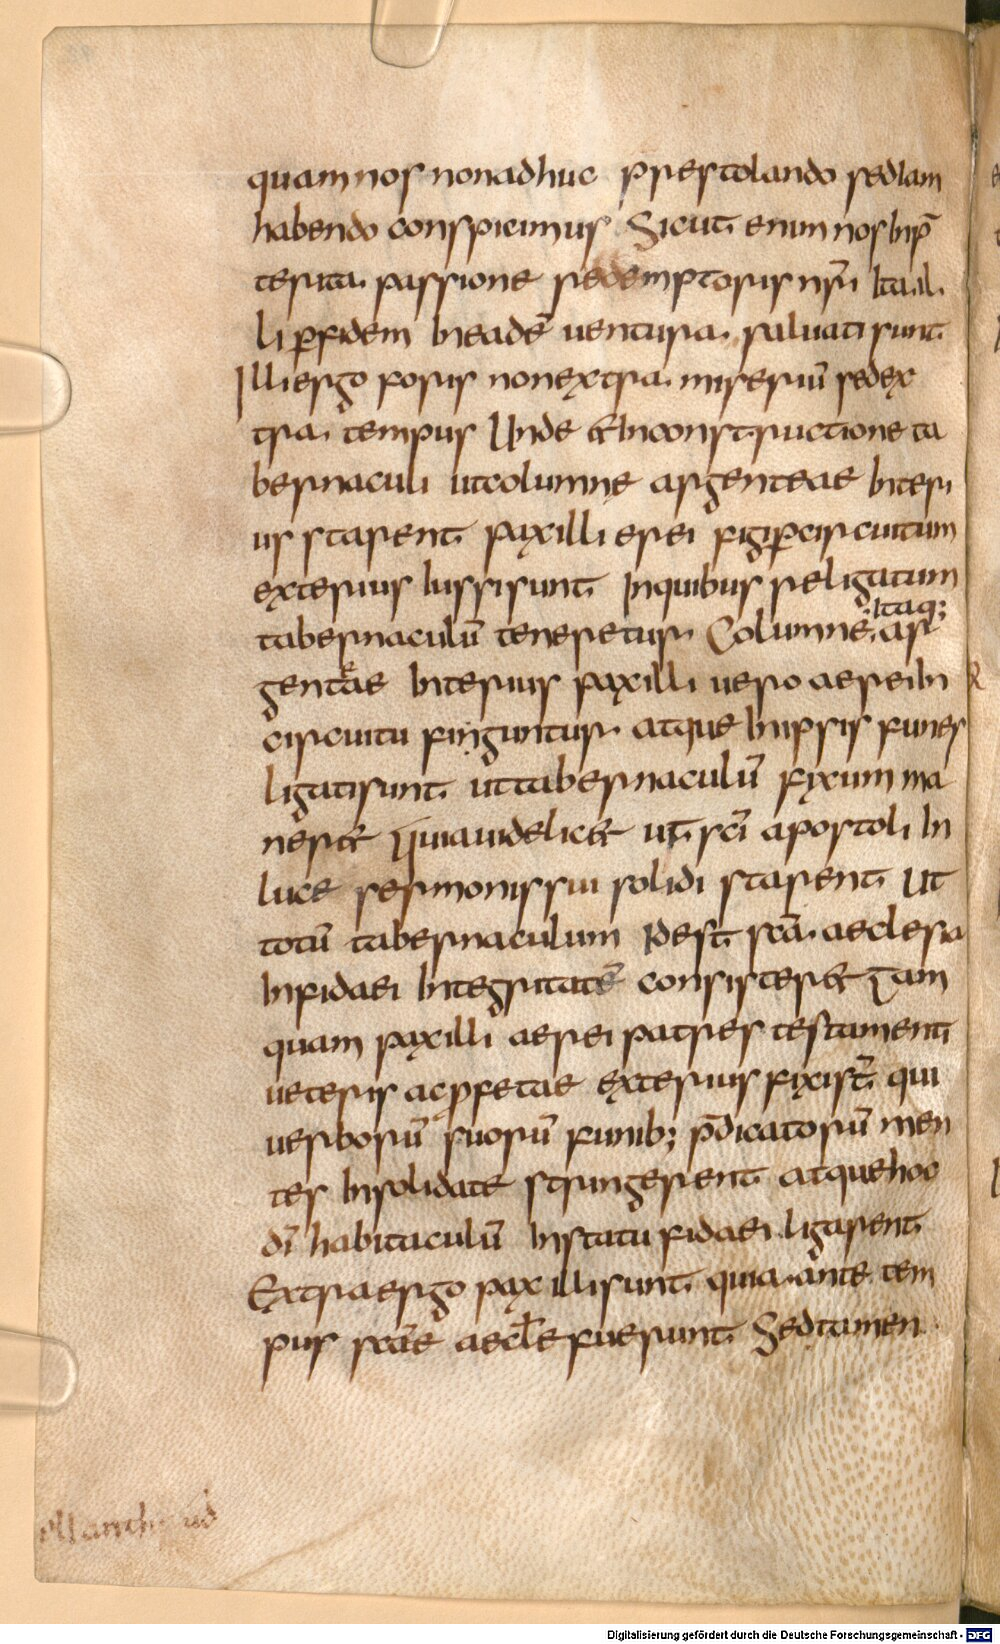 quam nos non adhuc prestolando sed iam
habendo conspicimus Sicut enim nos in p̄
terita passione redemptoris nr̄i Ita il
li ꝑ fidem in eadē ventura saluati sunt
Illi ergo foris non extra misteriū sed ex
tra tempus Unde & in constructione ta
bernaculi ut columne argenteae interi
us starent paxilli erei figi ꝑ circuitum
exterius iussi sunt In quibus religatum
tabernaculū teneretur Columne itaq; ar
genteae interius paxilli uero aerei in
circuitu finguntur atque in ipsis funes
ligati sunt ut tabernaculū fixum ma
ner& Quia uidelic& ut sc̄i apostoli in
luce sermonis sui solidi starent Ut
totū tabernaculum idest sc̄a aeclesia
in fidaei integritatē consister& Tam
quam paxilli aerei patres testamenti
ueteris ac ꝓfetae exterius fixi st̄ qui
uerborū suorū funib; p̄dicatorū men
tes in soliditate stringerent atque hoc
dī habitaculū in statu fidaei ligarent
Extra ergo paxilli sunt quia ante tem
pus sc̄ae aecłe fuerunt Sed tamen
Digitalisierung gefördert durch die Deutsche Forschungsgemeinschaft - DFG